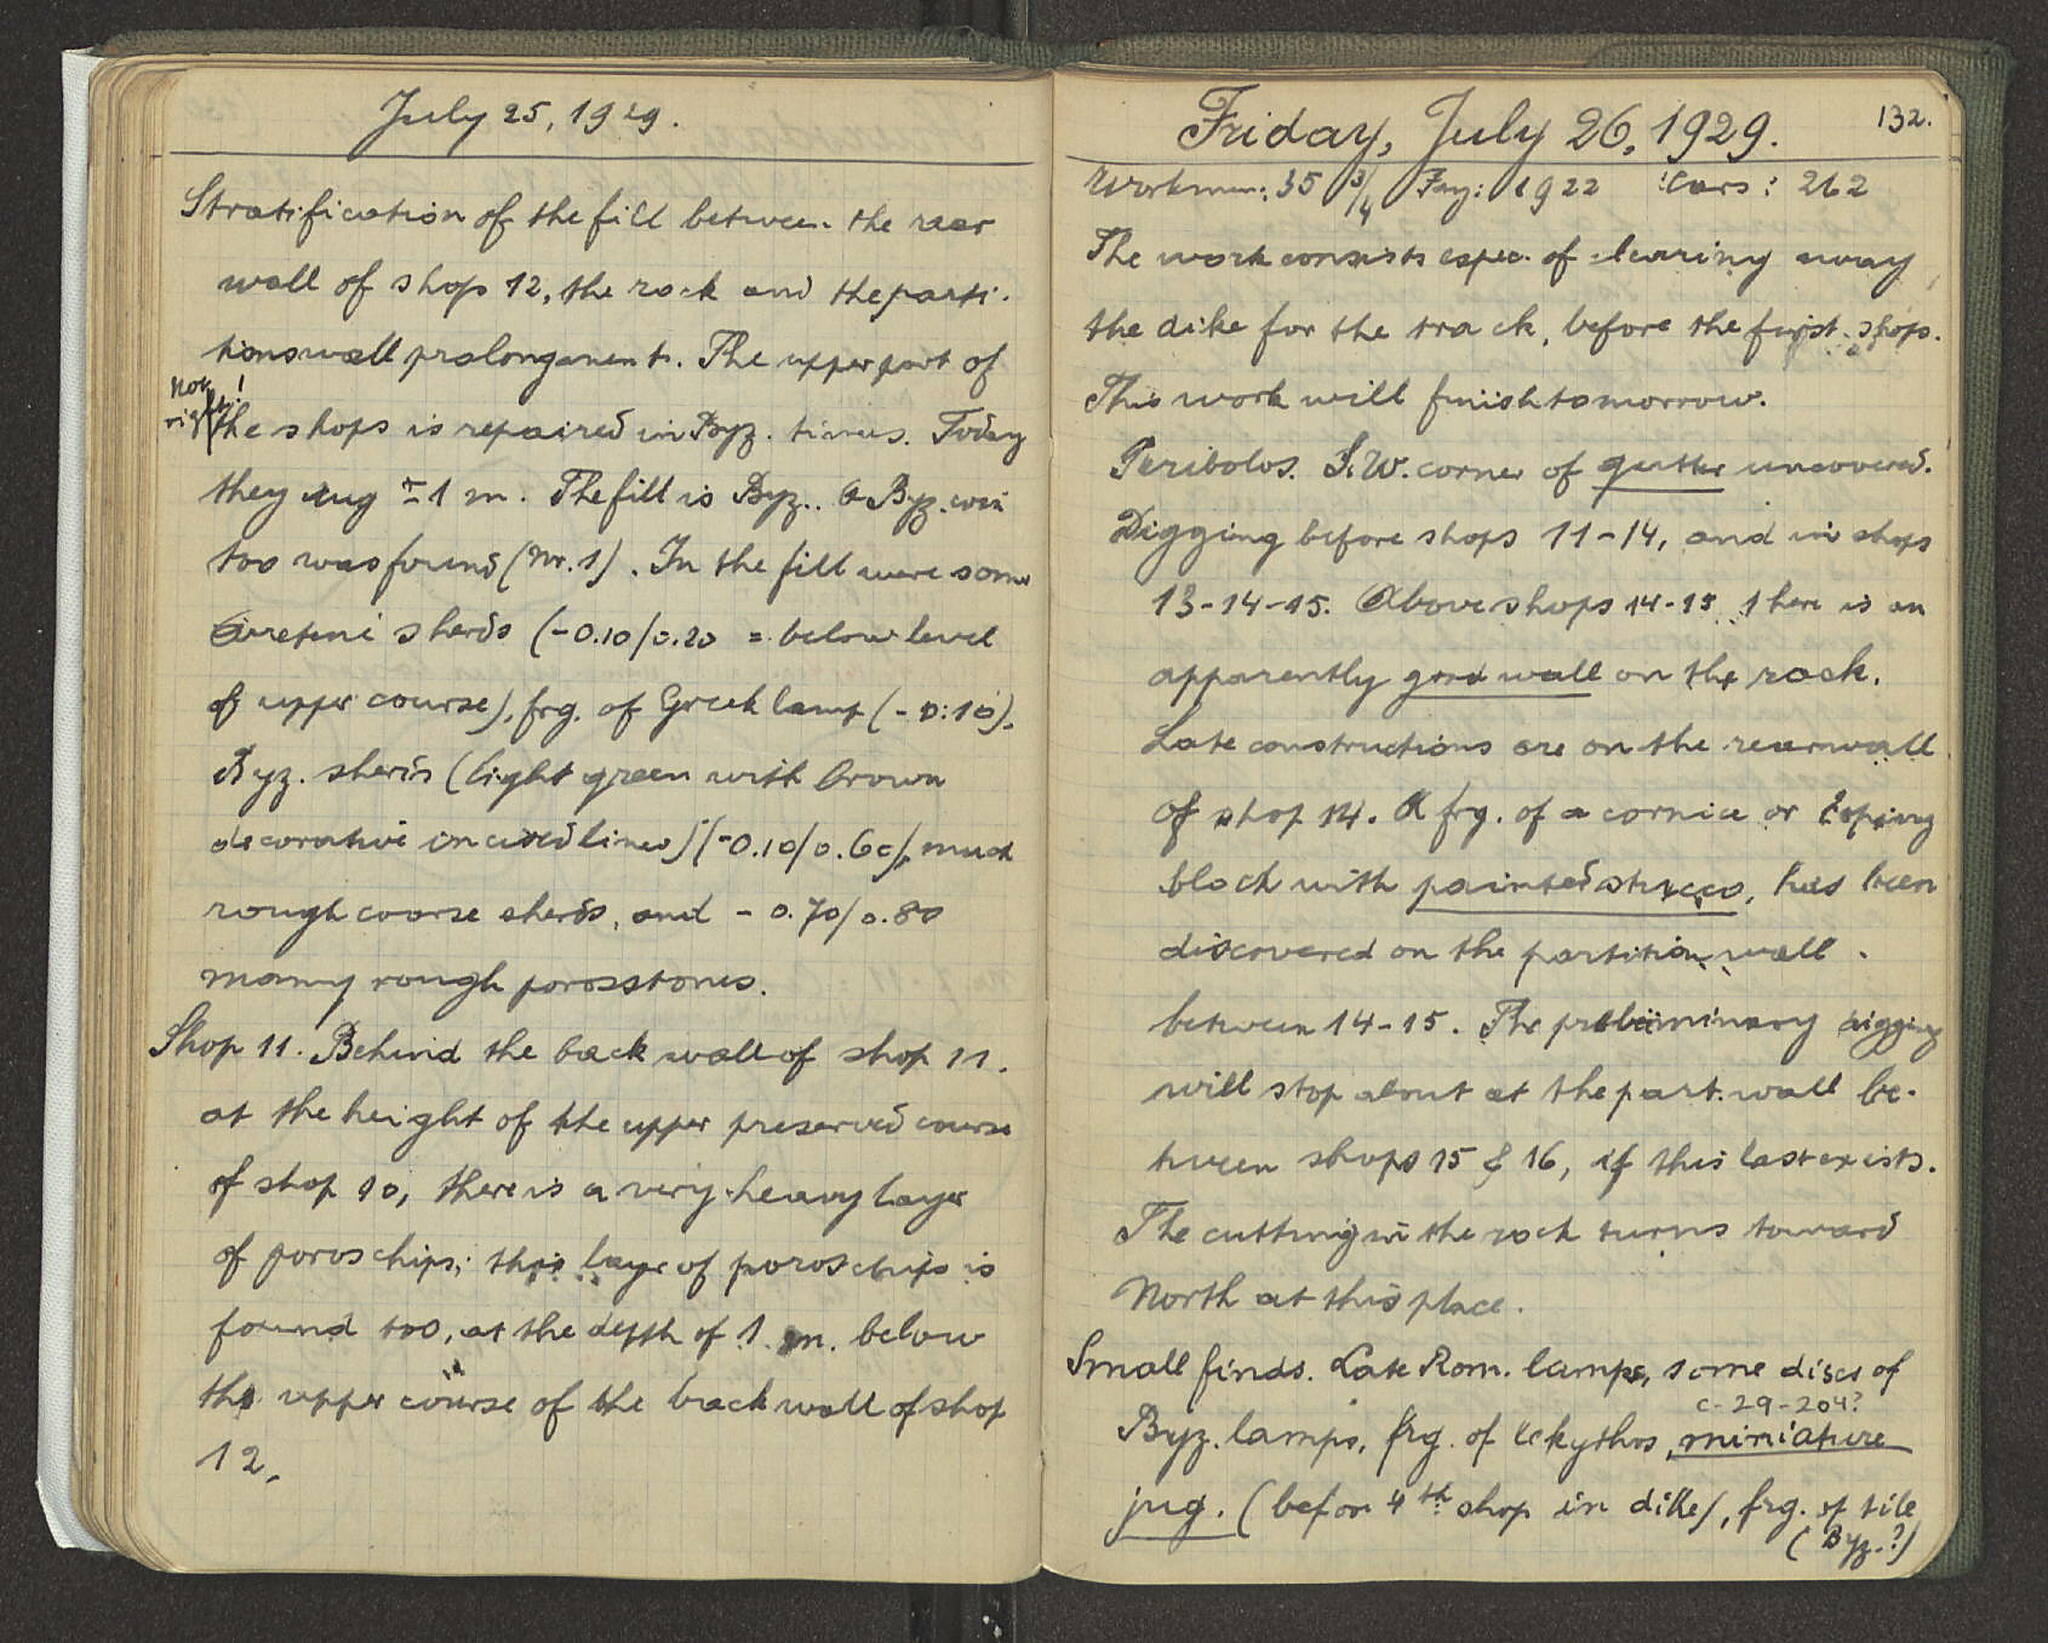 July 25, 1929.
Stratification of the fill between the rear
wall of shop 12, the rock and the parti-
tionswall prolongament. The upper part of
not right!
the shops is repaired in Byz. times. Today
they dug ± 1 m. The fill is Byz.. A Byz. coin
too was found (Nr. 1). In the fill were some
Arretini sherds (-0.10/0.20 = below level
of upper course), frg. of Greek lamp (-0.10),
Byz. sherds (light green with brown
decorative incised lines) (-0.10/0.60), much
rough coarse sherds, and -0.70/0.80
many rough porosstones.
Shop 11. Behind the back wall of shop 11.
at the height of the upper preserved course
of shop 10, there is a very heavy layer
of poros chips; this layer of poros chips is
found too, at the depth of 1 m. below
the upper course of the back wall of shop
12.
132.
Friday, July 26, 1929.
Workmen: 35 3/4 Pay: 1922 Cars: 262
The work consists espec. of clearing away
the dike for the track, before the first shops.
This work will finish tomorrow.
Peribolos. S.W. corner of gutter uncovered.
Digging before shops 11-14, and in shops
13-14-15. Above shops 14-15 there is an
apparently good wall on the rock.
Late constructions are on the rearwall
of shop 14. A frg. of a cornice or coping
block with painted stucco, has been
discovered on the partition wall.
between 14-15. The preliminary digging
will stop about at the part. wall be-
tween shops 15 & 16, if this last exists.
The cutting in the rock turns toward
North at this place.
Small finds. Late Rom. lamps, some discs of
C-29-204?
Byz. lamps, frg. of lekythos, miniature
jug. (before 4th shop in dike), frg. of tile
(Byz.?)